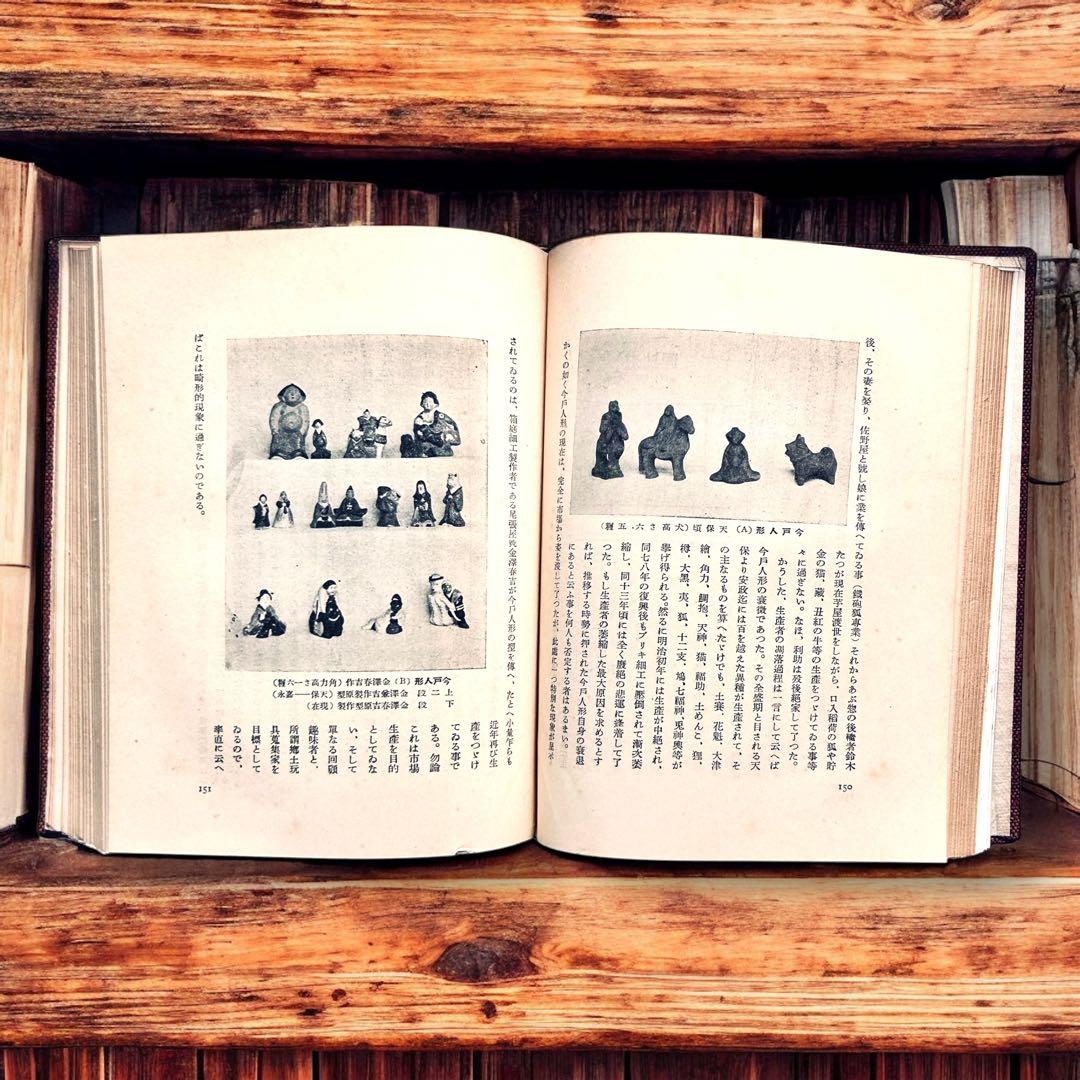 後、その妻を娶り、佐野屋と號し娘に業を傳へてゐる事（鐵砲狐專業）それからあぶ惣の後繼者鈴木
たつが現在芋屋渡世をしながら、口入稻荷の狐や貯
金の猫、蔵、丑紅の牛等の生産をつゞけてゐる事等
々に過ぎない。なほ、利助は歿後絕家して了つた。
かうした、生産者の凋落過程は一言にして云へば
今戸人形の衰微であつた。その全盛期と目される天
保より安政迄には百を越えた異種が生産されて、そ
の主なるものを算へたゞけでも、土賽、花魁、大津
繪、角力、餌抱、天神、猫、福助、土めんこ、狸、
樽、大黑、夷、狐、十二支、鳩、七福神、兎神輿等が
擧げ得られる。然るに明治初年には生産が中絶され、
同七八年の復興後もブリキ細工に壓倒されて漸次萎
縮し、同十三年頃には全く廢絕の悲運に逢着して了
つた。もし生産者の萎縮した最大原因を求めるとす
れば、推移する時勢に押された今戸人形自身の衰退
にあると云ふ事を何人も否定する者はあるまい。
かくの如く今戸人形の現在は、完全に市場から姿を沒して了つたが、此處に一つ特別な現象が見
今戸人形（A）天保頃（犬高さ六、五糎）
150
されてゐるのは、箱庭細工製作者である尾張屋金澤春吉が今戸人形の型を傳へ、たとへ小量乍らも
近年再び生
産をつゞけ
てゐる事で
ある。勿論
これは市場
生産を目的
としてゐな
い、そして
單なる回顧
趣味者と、
所謂鄕土玩
具蒐集家を
目標として
ゐるので、
率直に云へ
ばこれは畸形的現象に過ぎないのである。
今戸人形（B）金澤春吉作（角力高さ一六糎）
上二段 金澤兼吉作製原型（天保——嘉永）
下段 金澤春吉原型作製（現在）
151